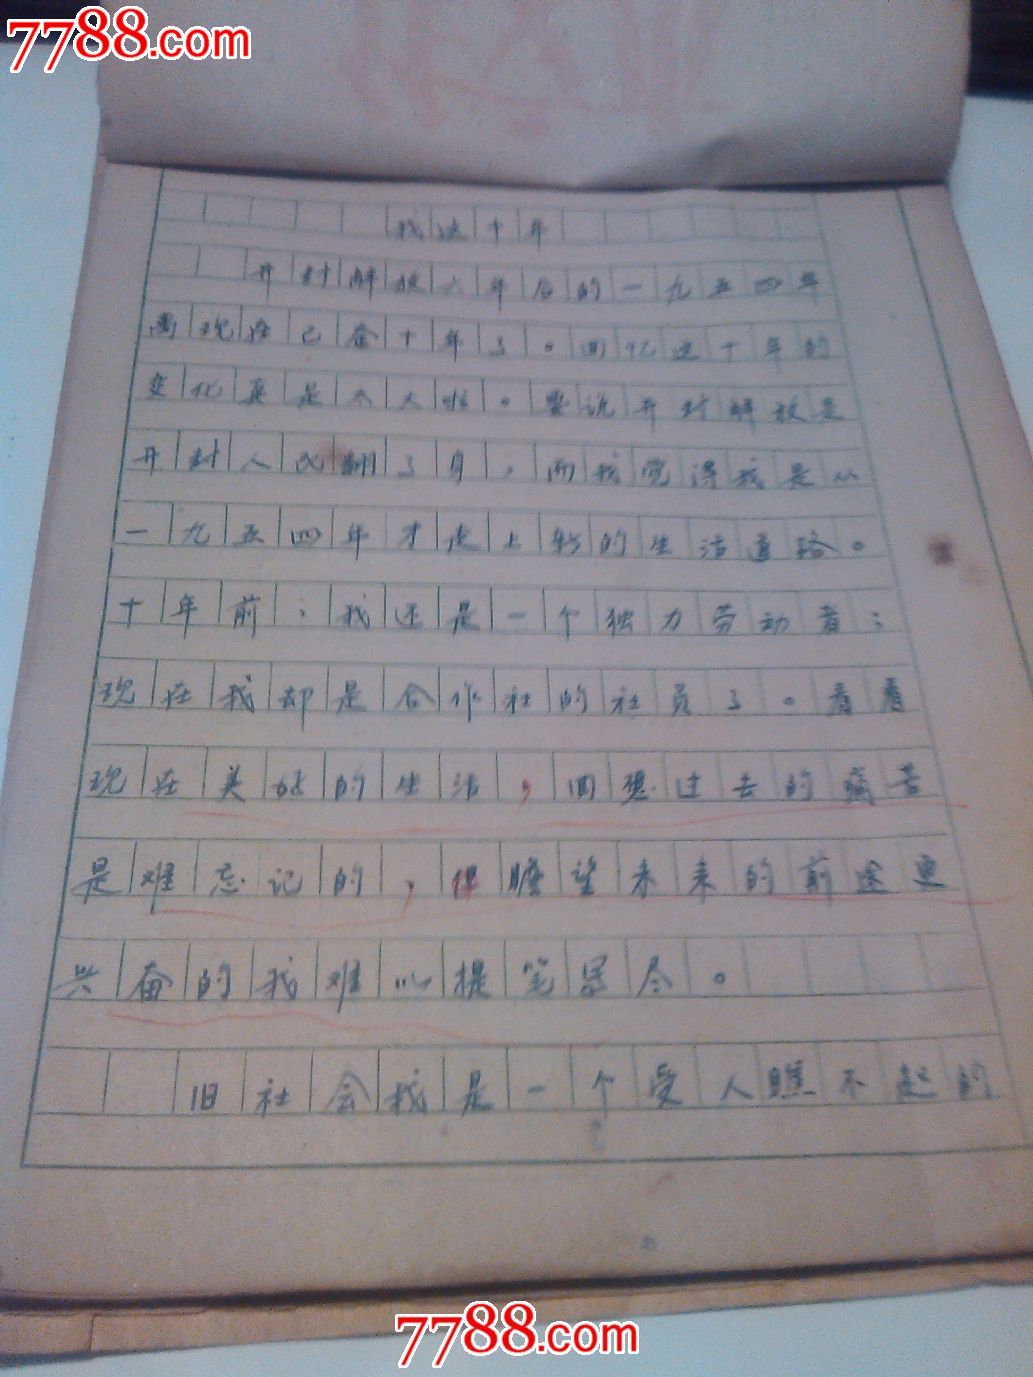 7788.com
我这十年
开封解放六年后的一九五四年
离现在已有十年了。回忆这十年的
变化真是太大啦。要说开封解放是
开封人民翻了身，而我觉得我是从
一九五四年才走上新的生活道路。
十年前：我还是一个独力劳动者；
现在我却是合作社的社员了。看看
现在美好的生活，回想过去的痛苦
是难忘记的，但瞻望未来的前途更
兴奋的我难以提笔写尽。
旧社会我是一个受人瞧不起的
7788.com